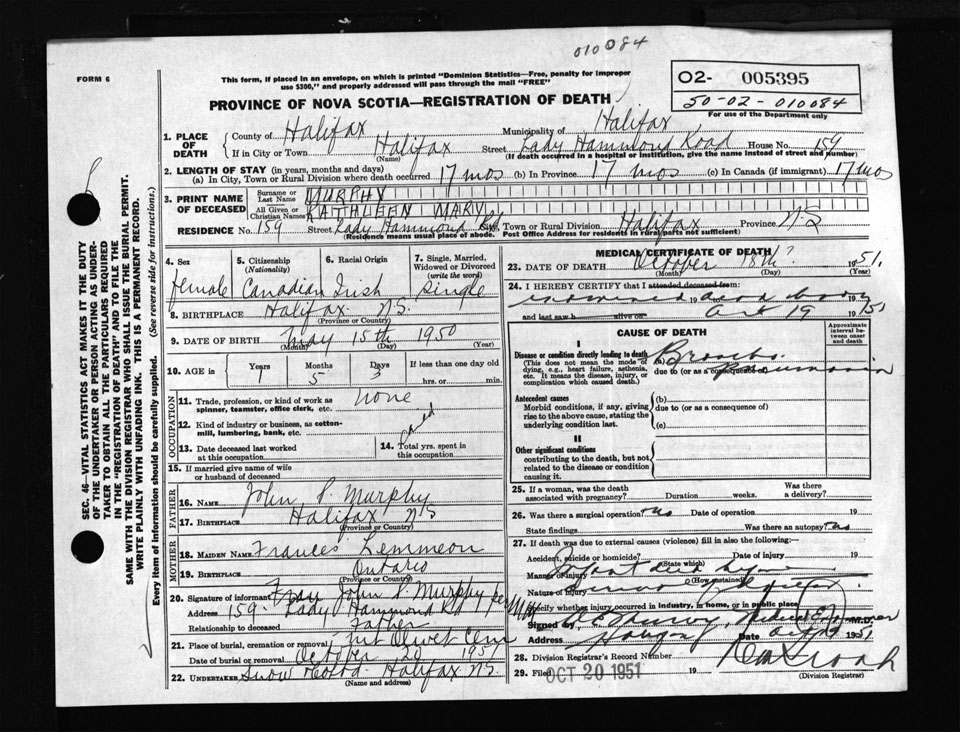 010084
FORM 6
This form, if placed in an envelope, on which is printed "Dominion Statistics—Free, penalty for improper
use $300," and properly addressed will pass through the mail "FREE"
O2- 005395
50-02-010084
For use of the Department only
PROVINCE OF NOVA SCOTIA—REGISTRATION OF DEATH
1. PLACE OF DEATH
County of Halifax Municipality of Halifax
If in City or Town Halifax Street Lady Hammond Road House No. 159
(Name) (If death occurred in a hospital or institution, give the name instead of street and number)
2. LENGTH OF STAY (in years, months and days)
(a) In City, Town or Rural Division where death occurred 17 mos (b) In Province 17 mos (c) In Canada (if immigrant) 17 mos
3. PRINT NAME OF DECEASED
Surname or Last Name MURPHY
All Given or Christian Names KATHLEEN MARY
RESIDENCE No. 159 Street Lady Hammond Rd City, Town or Rural Division Halifax Province N.S
(Residence means usual place of abode. Post Office Address for residents in rural parts not sufficient)
4. Sex
female
5. Citizenship
(Nationality)
Canadian
6. Racial Origin
Irish
7. Single, Married,
Widowed or Divorced
(write the word)
Single
8. BIRTHPLACE Halifax N.S.
(Province or Country)
9. DATE OF BIRTH May 15th 1950
(Month) (Day) (Year)
10. AGE in
Years Months Days If less than one day old
1 5 3 hrs. or min.
OCCUPATION
11. Trade, profession, or kind of work as
spinner, teamster, office clerk, etc. none
12. Kind of industry or business, as cotton-
mill, lumbering, bank, etc.
13. Date deceased last worked
at this occupation
14. Total yrs. spent in
this occupation
15. If married give name of wife
or husband of deceased
FATHER
16. NAME John P. Murphy
17. BIRTHPLACE Halifax NS
(Province or Country)
MOTHER
18. MAIDEN NAME Frances
19. BIRTHPLACE Ontario
(Province or Country)
20. Signature of informant John P. Murphy
Address 159 Lady Hammond Rd
Relationship to deceased Father
21. Place of burial, cremation or removal Mt Olivet Cem
Date of burial or removal October 20 1951
22. UNDERTAKER Snow Halifax NS
(Name and address)
MEDICAL CERTIFICATE OF DEATH
23. DATE OF DEATH October 18th? 1951.
(Month) (Day) (Year)
24. I HEREBY CERTIFY that I attended deceased from:
examined dead body 19
and last saw h alive on Oct 19 1951
CAUSE OF DEATH
Approximate interval between onset and death
I
Disease or condition directly leading to death
(This does not mean the mode of
dying, e.g., heart failure, asthenia,
etc. It means the disease, injury, or
complication which caused death.)
(a) Broncho
due to (or as a consequence of) pneumonia
Antecedent causes
Morbid conditions, if any, giving
rise to the above cause, stating the
underlying condition last.
(b)
due to (or as a consequence of)
(c)
II
Other significant conditions
contributing to the death, but not
related to the disease or condition
causing it.
25. If a woman, was the death
associated with pregnancy? Duration weeks. Was there
a delivery?
26. Was there a surgical operation? no Date of operation 19
State findings Was there an autopsy? no
27. If death was due to external causes (violence) fill in also the following:
Accident, suicide or homicide? Date of injury 19
(State which)
Manner of injury Infant died
(How sustained)
Nature of injury
Specify whether injury occurred in industry, in home, or in public place
Signed by M.D.
Address Date Oct 1951
28. Division Registrar's Record Number
29. Filed OCT 20 1951 19
(Division Registrar)
SEC. 46—VITAL STATISTICS ACT MAKES IT THE DUTY
OF THE UNDERTAKER OR PERSON ACTING AS UNDER-
TAKER TO OBTAIN ALL THE PARTICULARS REQUIRED
IN THE "REGISTRATION OF DEATH" AND TO FILE THE
SAME WITH THE DIVISION REGISTRAR WHO SHALL ISSUE THE BURIAL PERMIT.
WRITE PLAINLY WITH UNFADING INK. THIS IS A PERMANENT RECORD.
Every item of information should be carefully supplied. (See reverse side for instructions.)